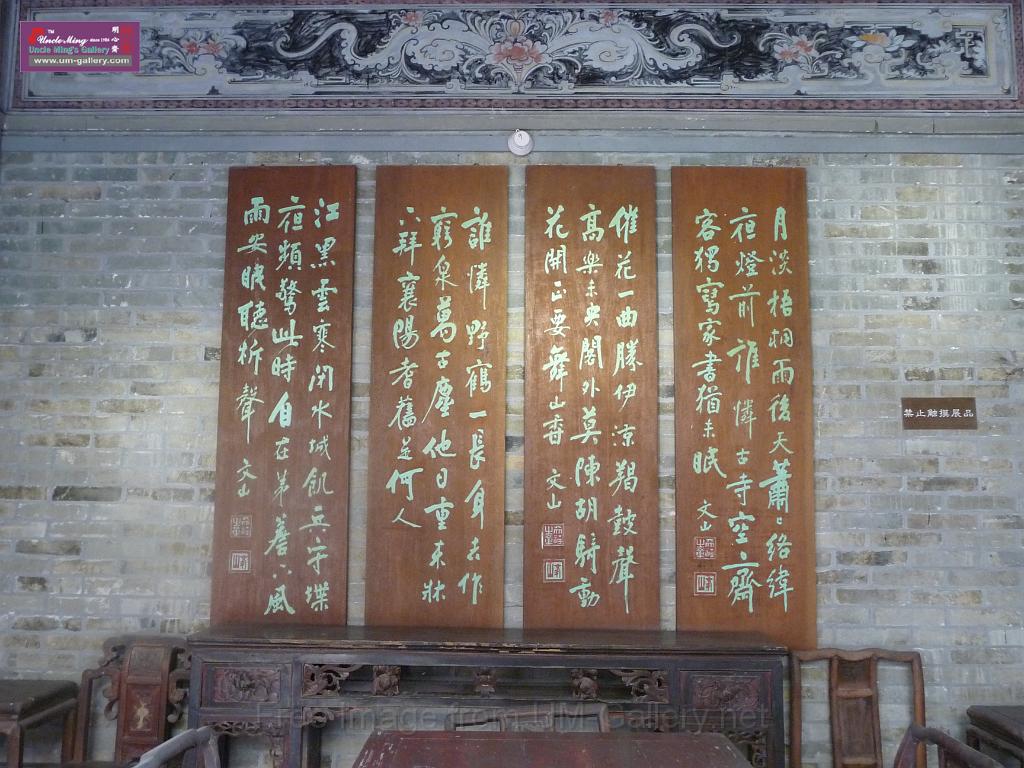 月淡梧桐雨後天蕭〻絡緯
夜燈前誰憐古寺空齋
客獨寫家書猶未眠 文山
催花一曲勝伊涼羯鼓聲
高樂未央閣外莫陳胡騎動
花開正要舞山香 文山
誰憐野鶴一長身去作
窮泉萬古塵他日重來牀
下拜襄陽耆舊是何人
江黑雲寒閉水城飢兵守堞
夜頻驚此時自在茅菴下風
雨安眠聽柝聲 文山
禁止触摸展品
Uncle Ming
Uncle Ming's Gallery
www.um-gallery.com
Free image from UM-Gallery.net